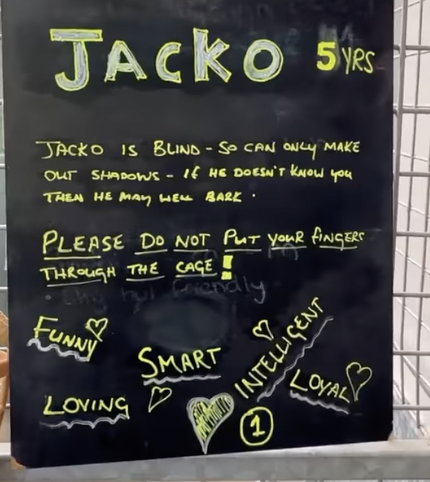 JACKO 5 YRS
JACKO IS BLIND - SO CAN ONLY MAKE
OUT SHADOWS - IF HE DOESN'T KNOW YOU
THEN HE MAY WELL BARK.
PLEASE DO NOT PUT YOUR FINGERS
THROUGH THE CAGE!
• Shy but friendly
FUNNY
SMART
INTELLIGENT
LOYAL
LOVING
1